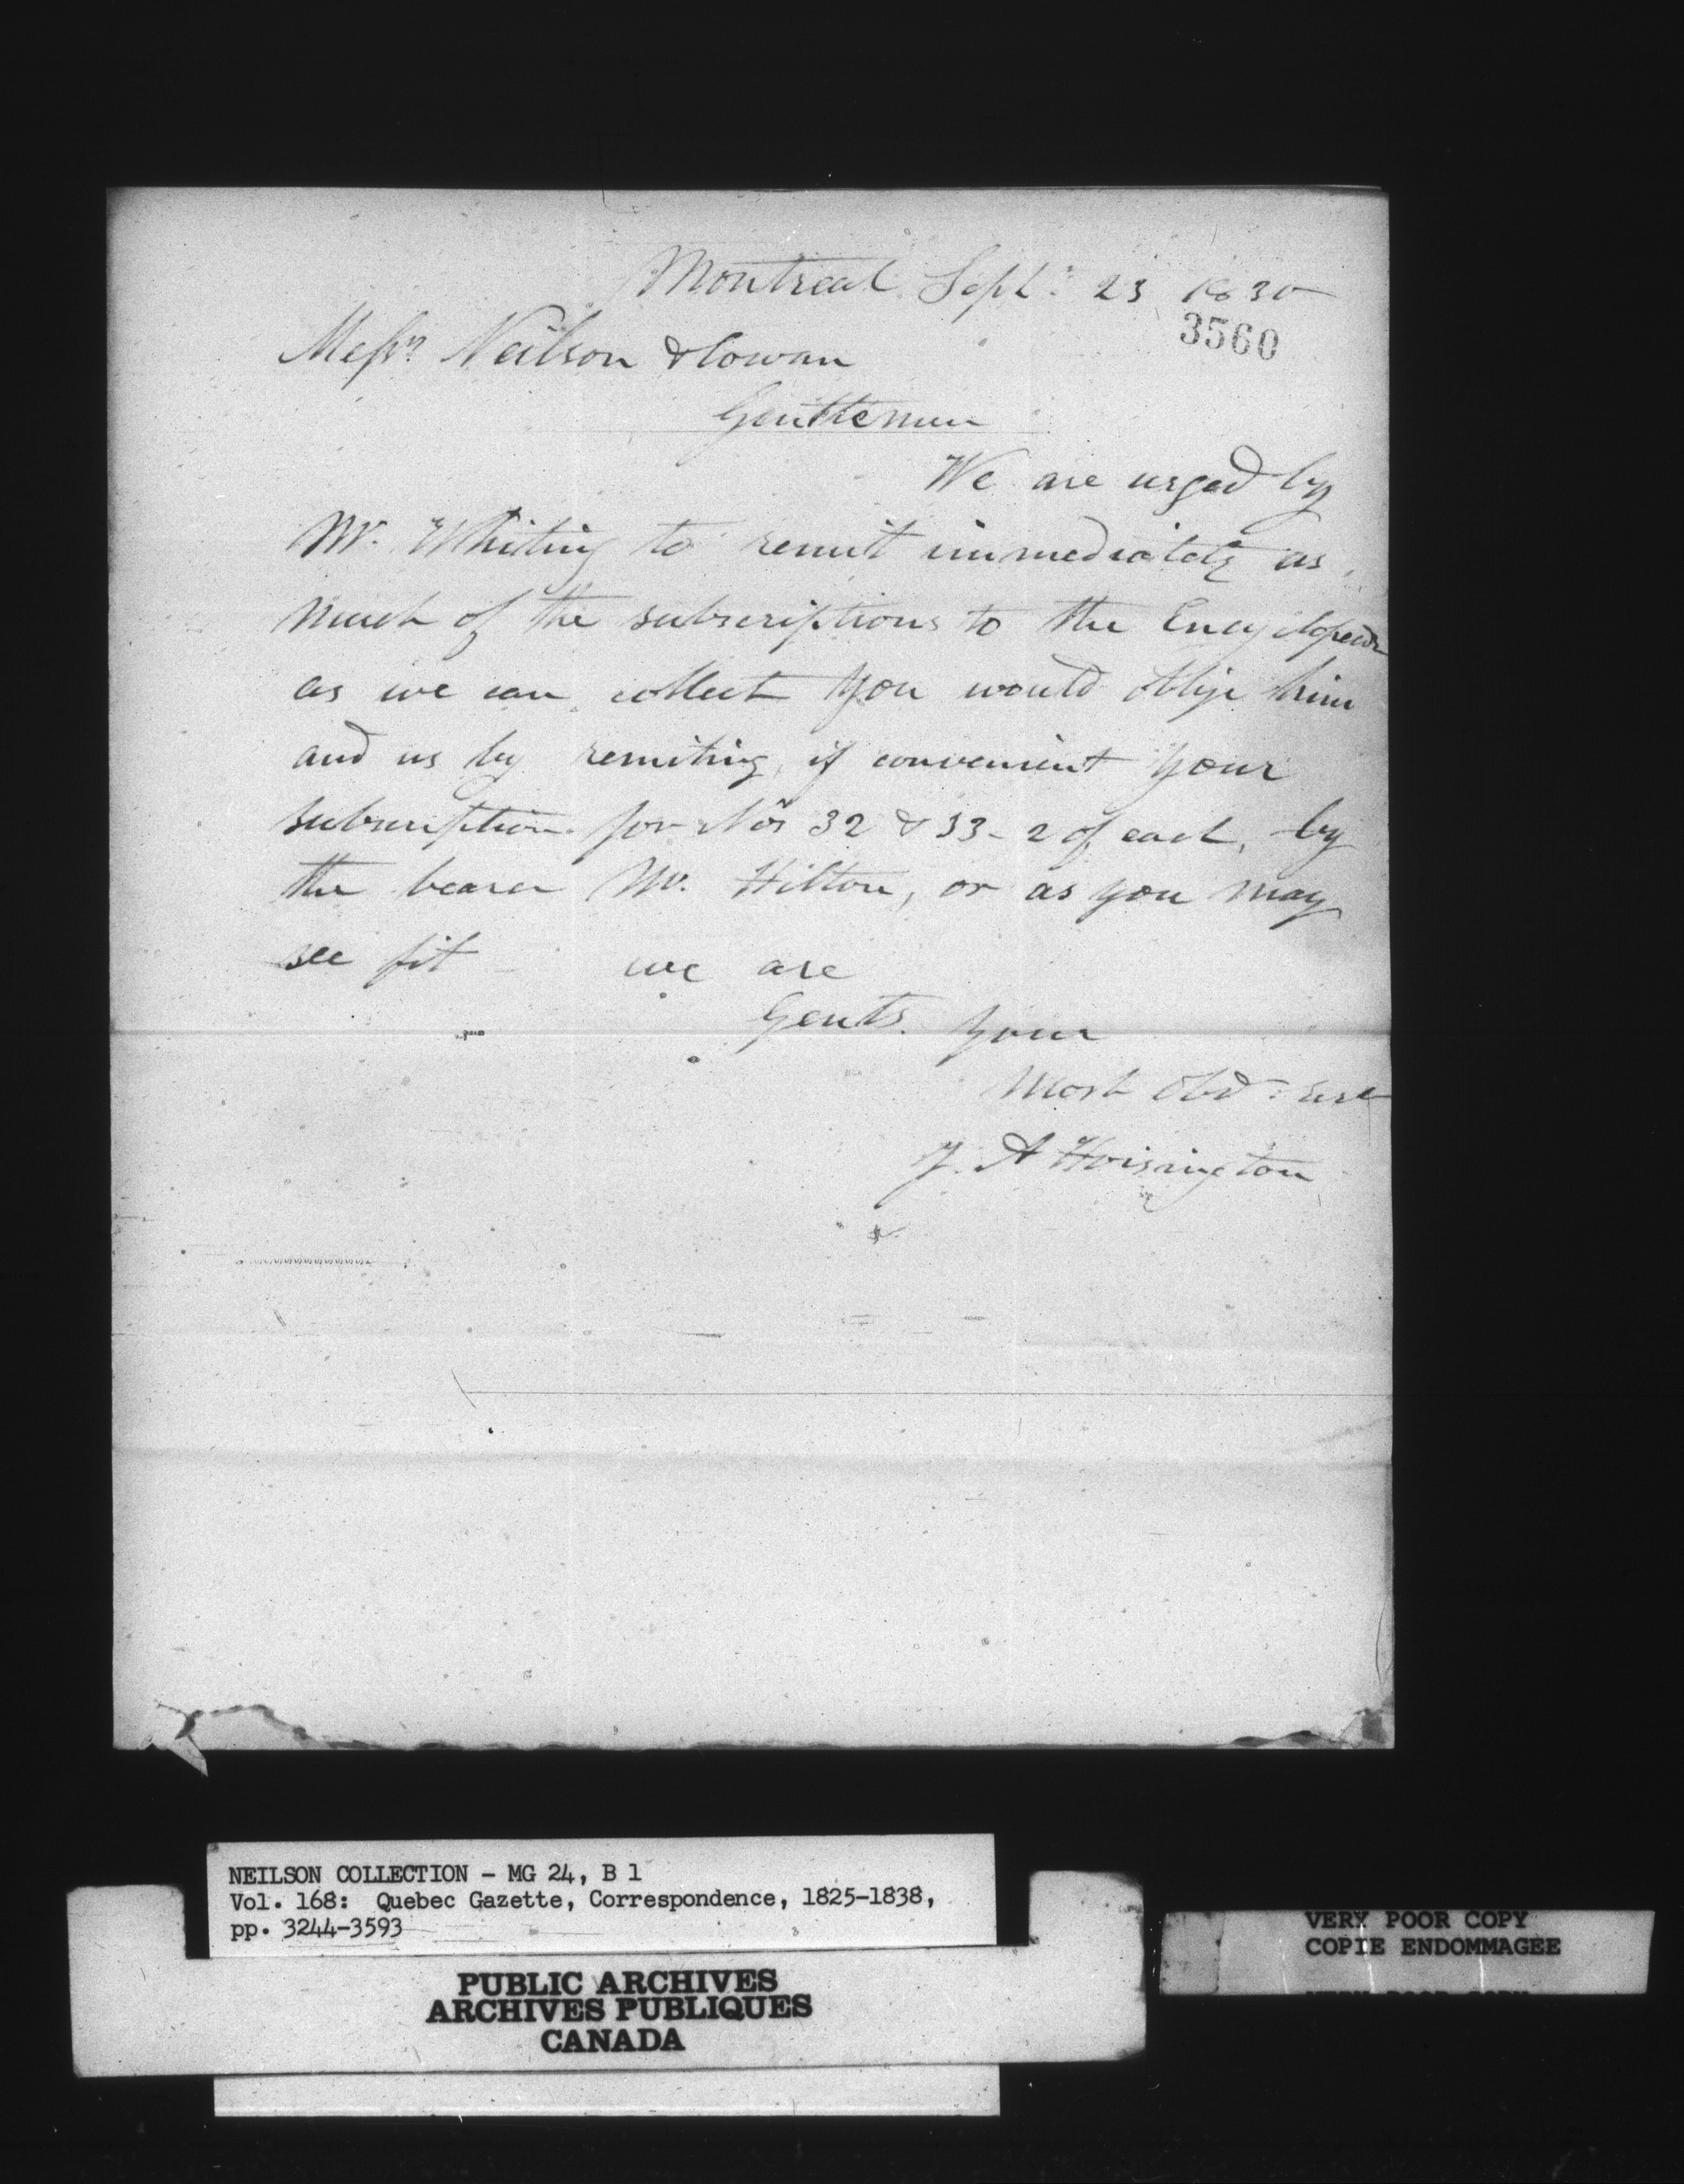 Montreal Sept: 23 1830
3560
Messrs. Neilson & Cowan
Gentlemen
We are urged by
Mr. Whiting to remit immediately as
much of the subscriptions to the Encyclopedia
as we can collect you would oblige him
and us by remiting, if convenient your
subscription for Nos 32 & 33 - 2 of each, by
the bearer Mr. Hilton, or as you may
see fit we are
Gents. your
Most Obd:
J. A Hoisington
NEILSON COLLECTION - MG 24, B 1
Vol. 168: Quebec Gazette, Correspondence, 1825-1838,
pp. 3244-3593
PUBLIC ARCHIVES
ARCHIVES PUBLIQUES
CANADA
VERY POOR COPY
COPIE ENDOMMAGEE